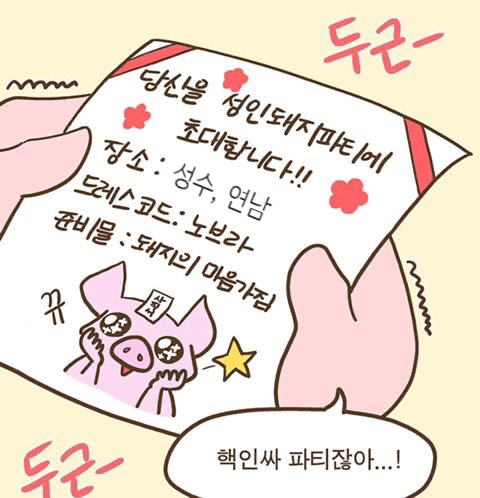 두근-
당신을 성인돼지파티에
초대합니다!!
장소 : 성수, 연남
드레스코드 : 노브라
준비물 : 돼지의 마음가짐
뀨
핵인싸 파티잖아...!
두근-